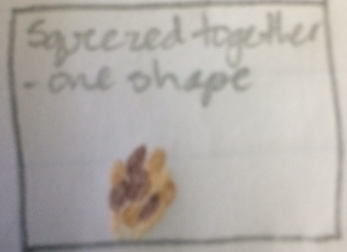 Squeezed together
- one shape